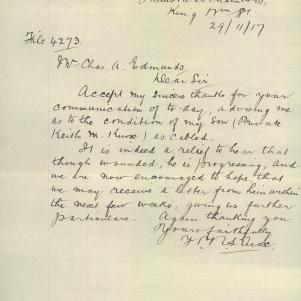 King Wm St
29/11/17
File 4273.
Mr Chas. A. Edmunds
Dear Sir
Accept my sincere thanks for your
communication of to-day, advising me
as to the condition of my son (Private
Keith M. Knox) as cabled.
It is indeed a relief to hear that
though wounded, he is progressing, and
we are now encouraged to hope that
we may receive a letter from him within
the next few weeks, giving us further
particulars. Again thanking you
Yours faithfully
Knox